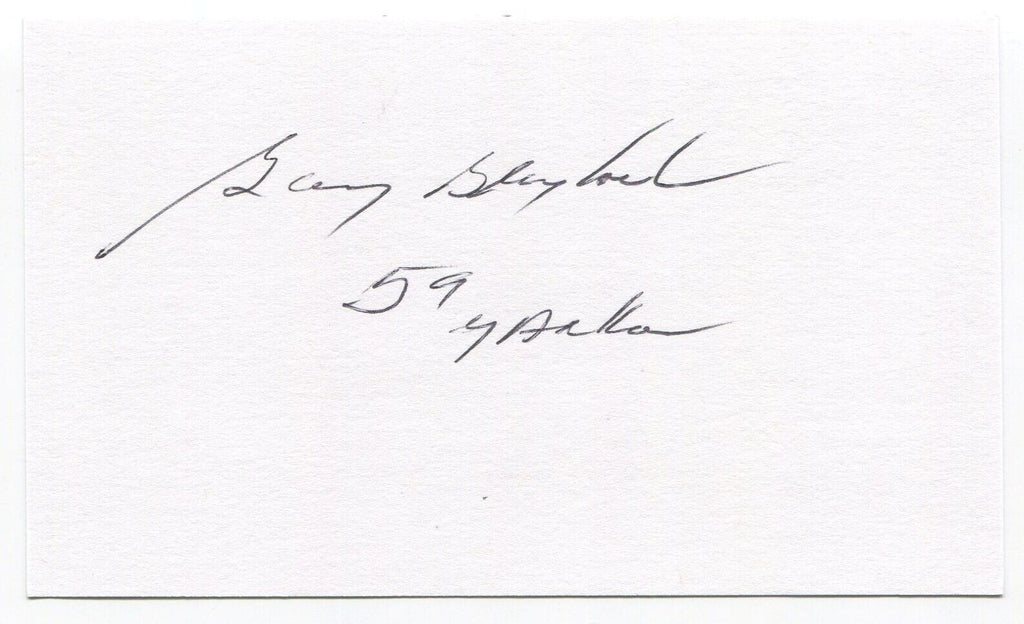 Gary Blaylock
59
Yankee